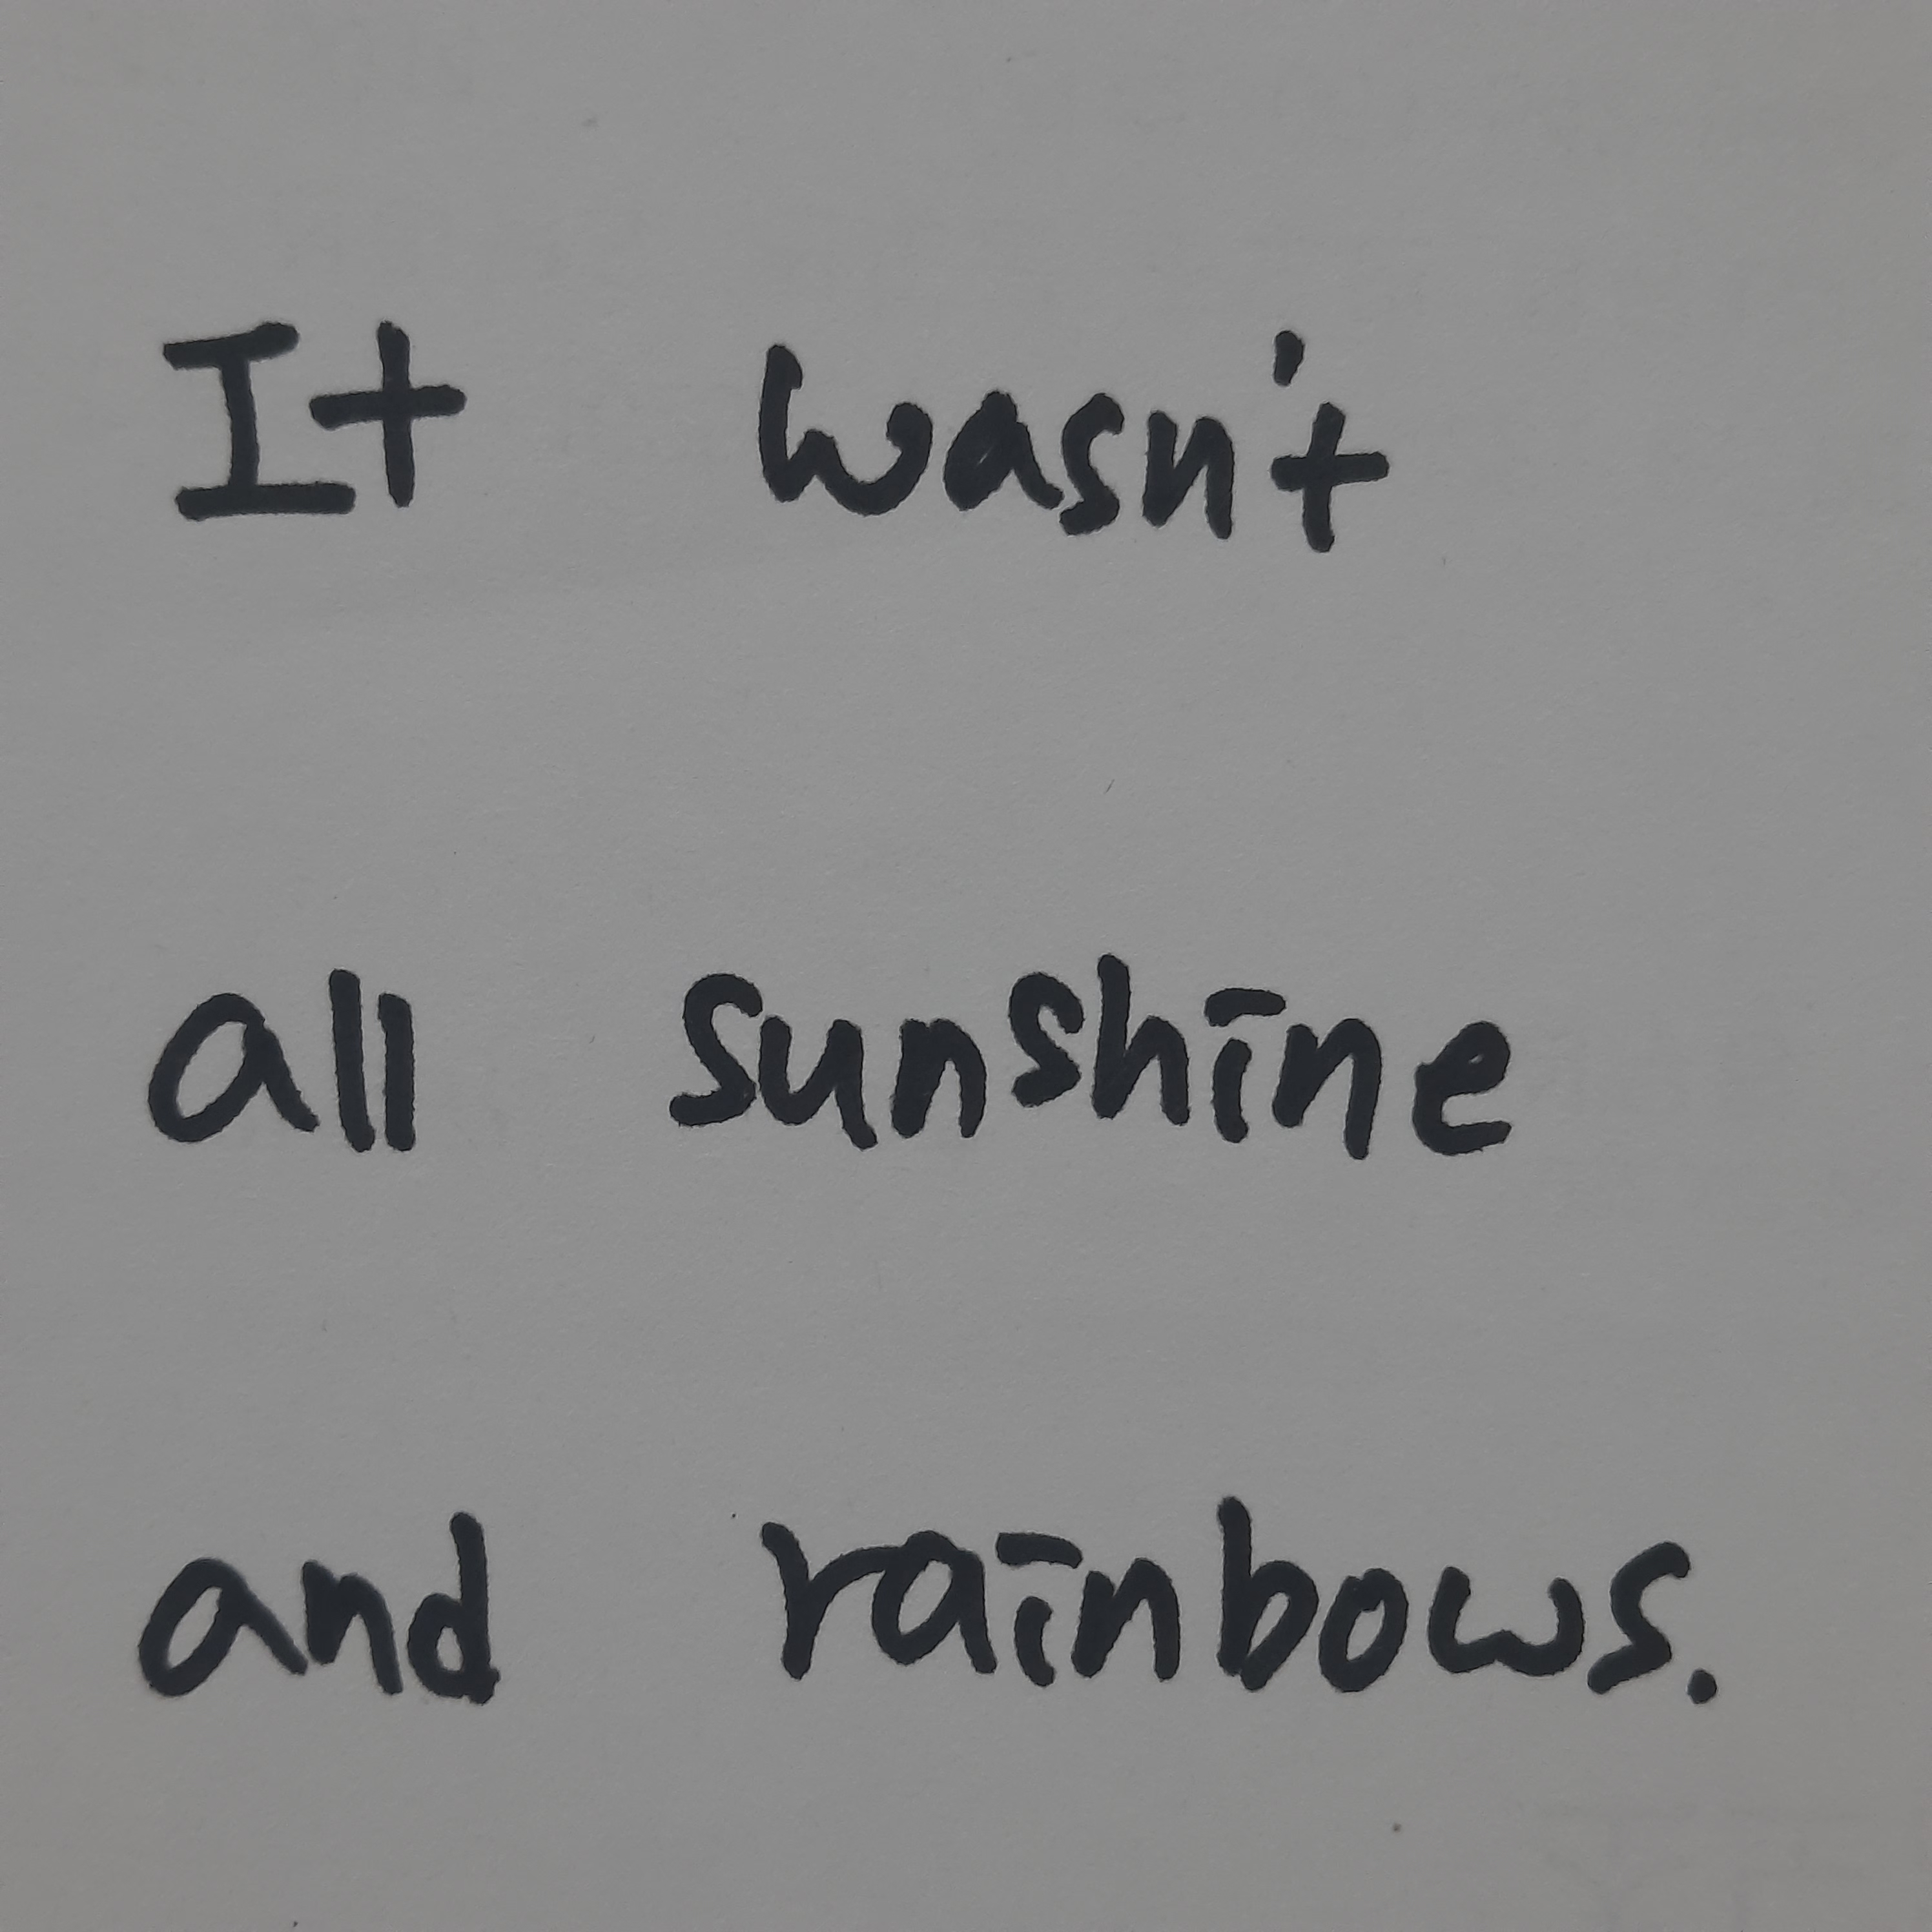 It wasn't
all sunshine
and rainbows.